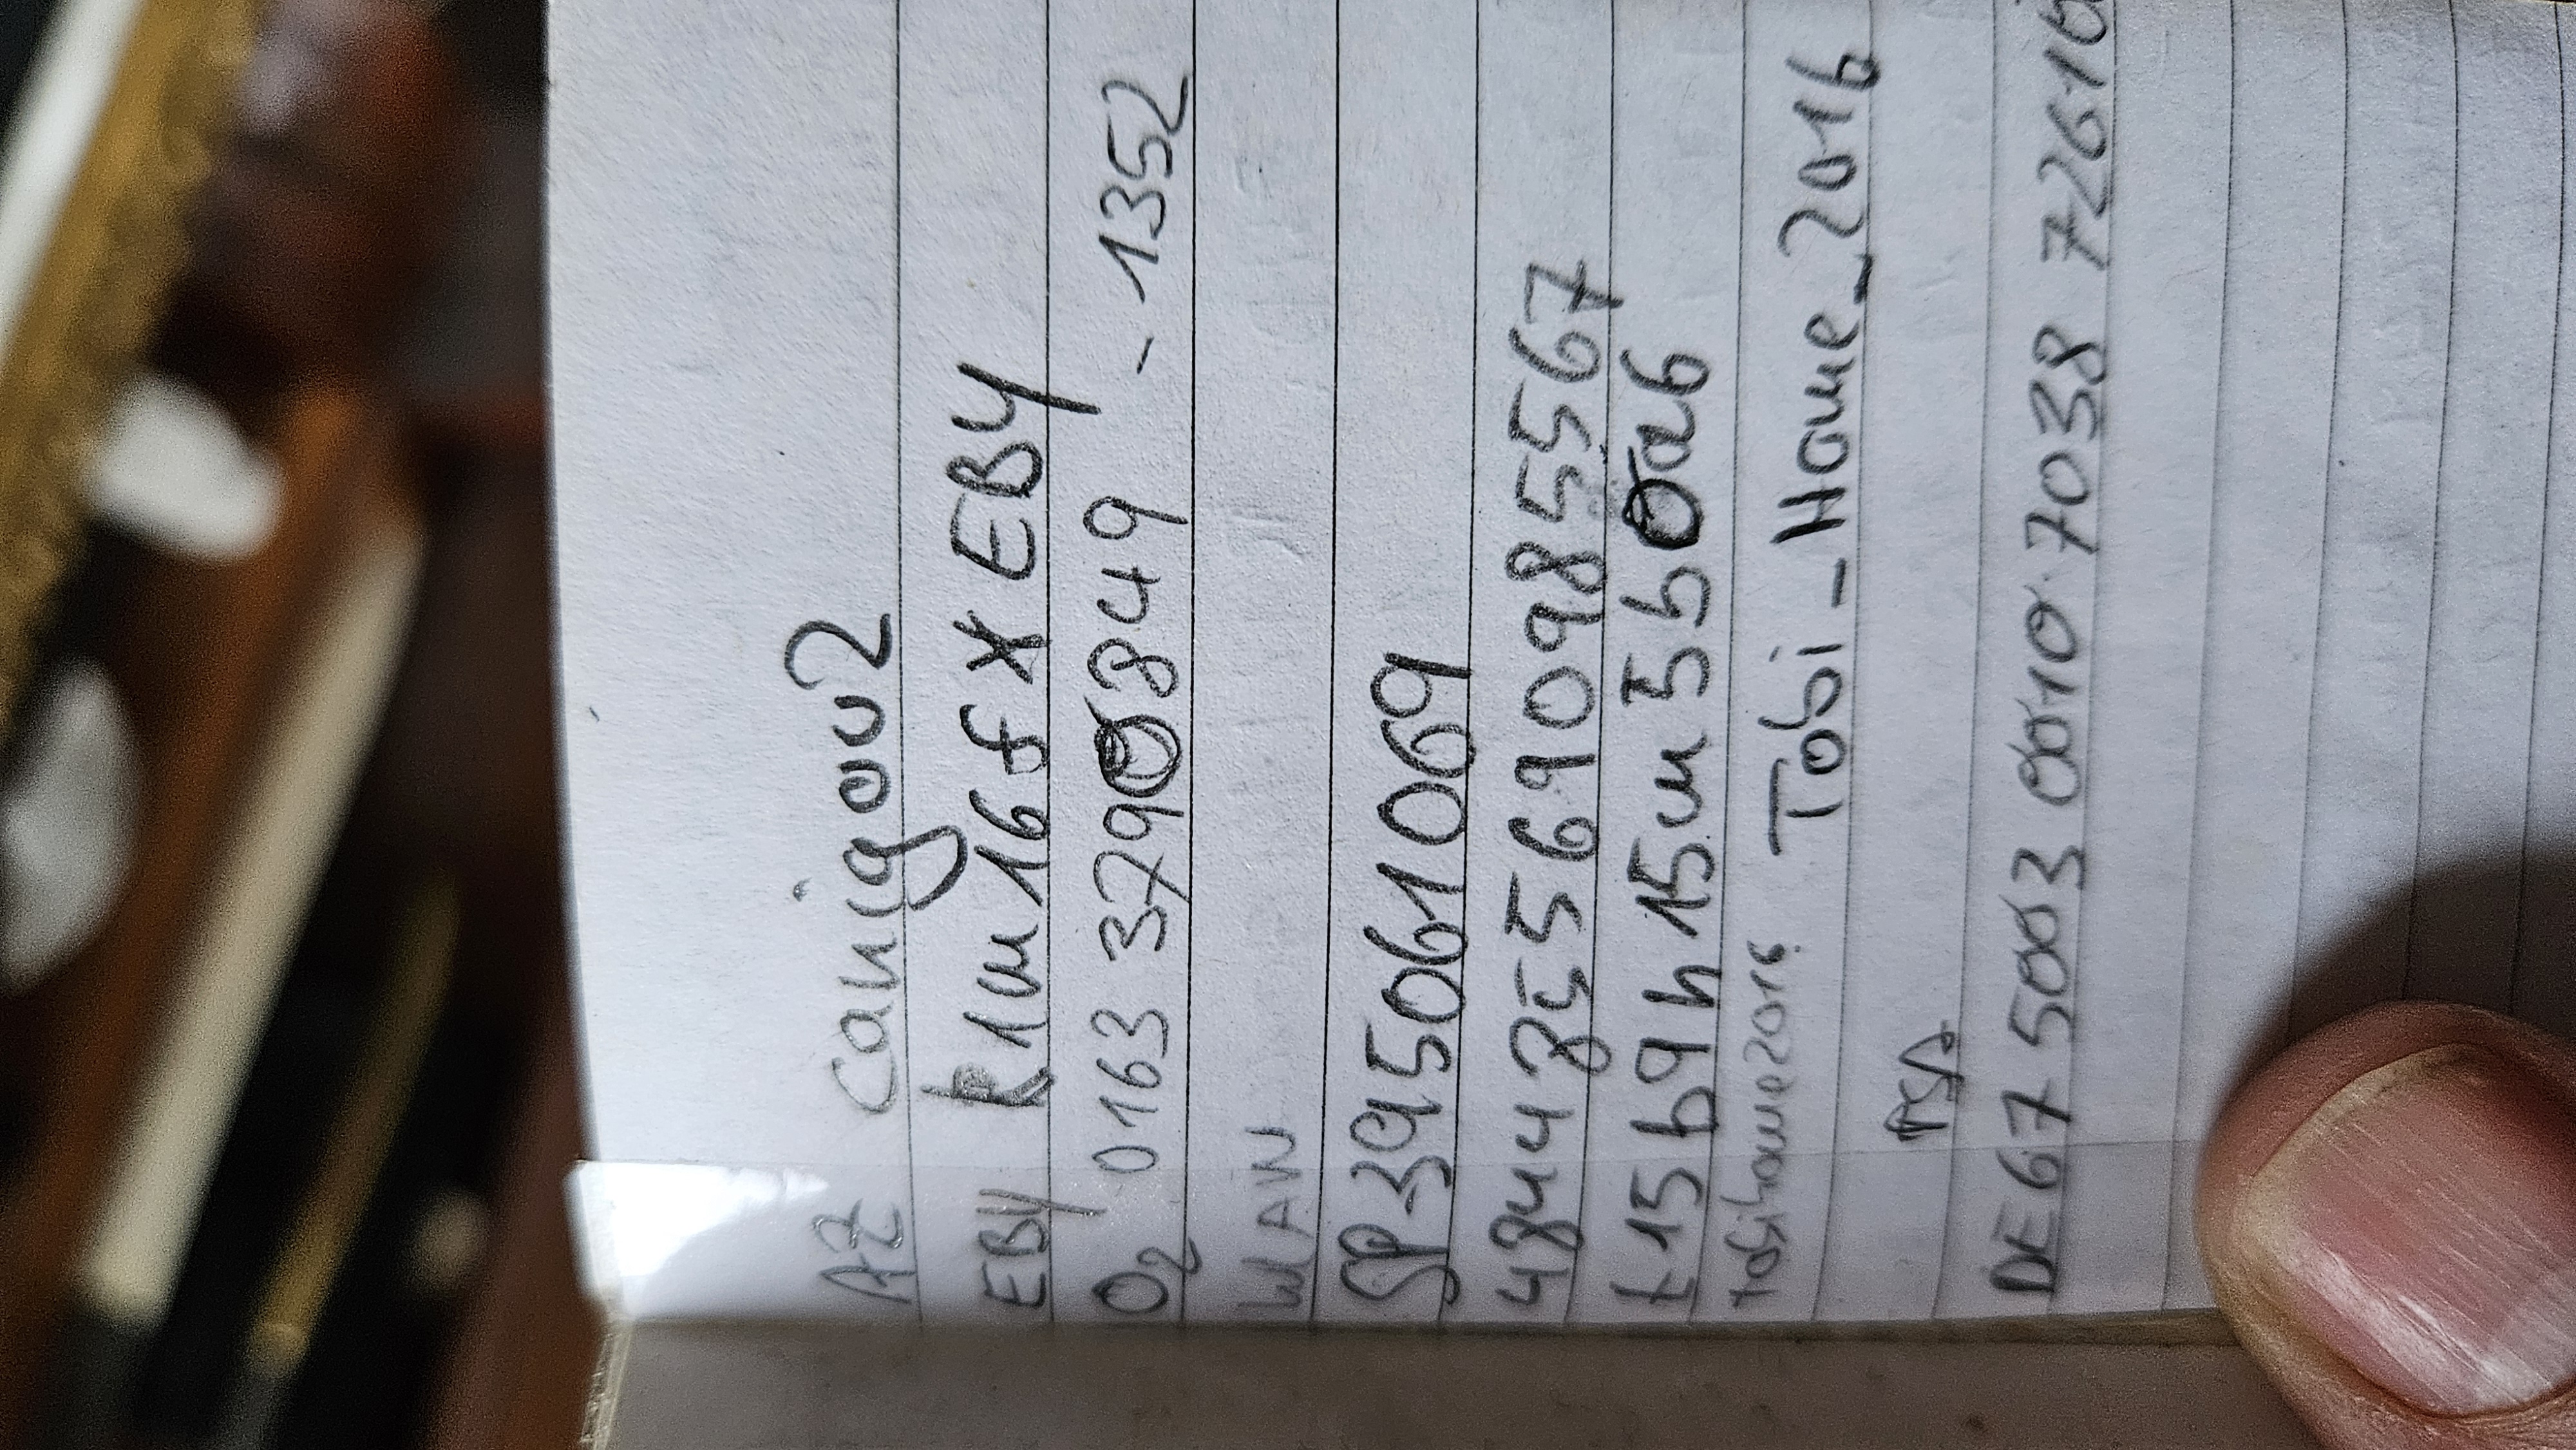 AZ Canigou2
EBY k1m16f*EBY
O2 0163 3790849 - 1352
WLAN
SP-395061069
4844855690985567
t15b9h15m5b0a6
tobihome2016 Tobi-Home_2016
PSD
DE67 5003 0010 7038 72610